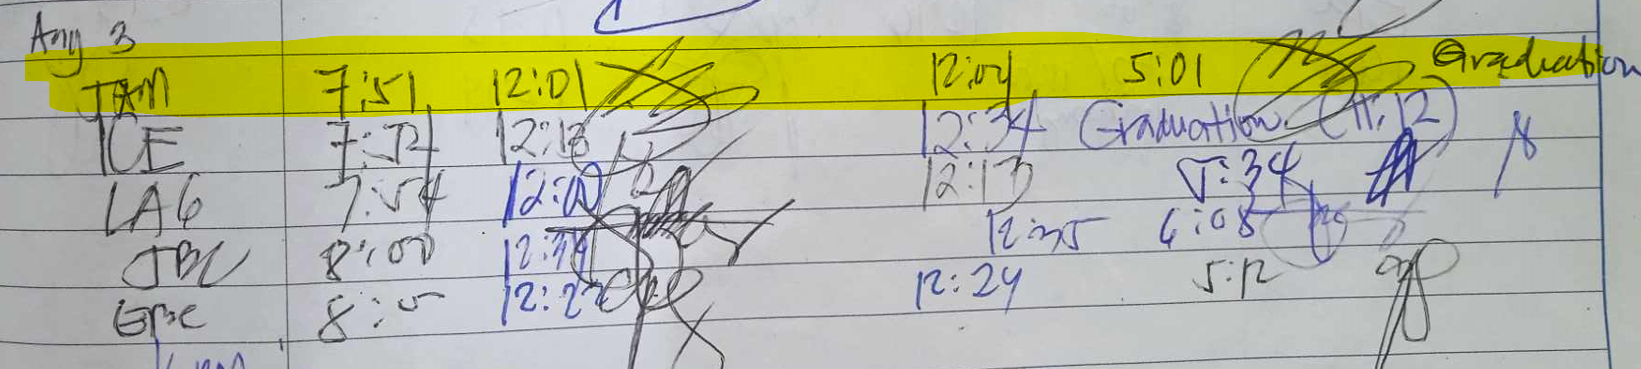 Aug 3
JAM 7:51 12:01 12:04 5:01 Graduation
ICE 7:52 12:13 12:34 Graduation (11:12)
LAG 7:54 12:00 12:13 5:34
JBC 8:00 12:34 12:35 6:08
GBC 12:22 12:24 5:12